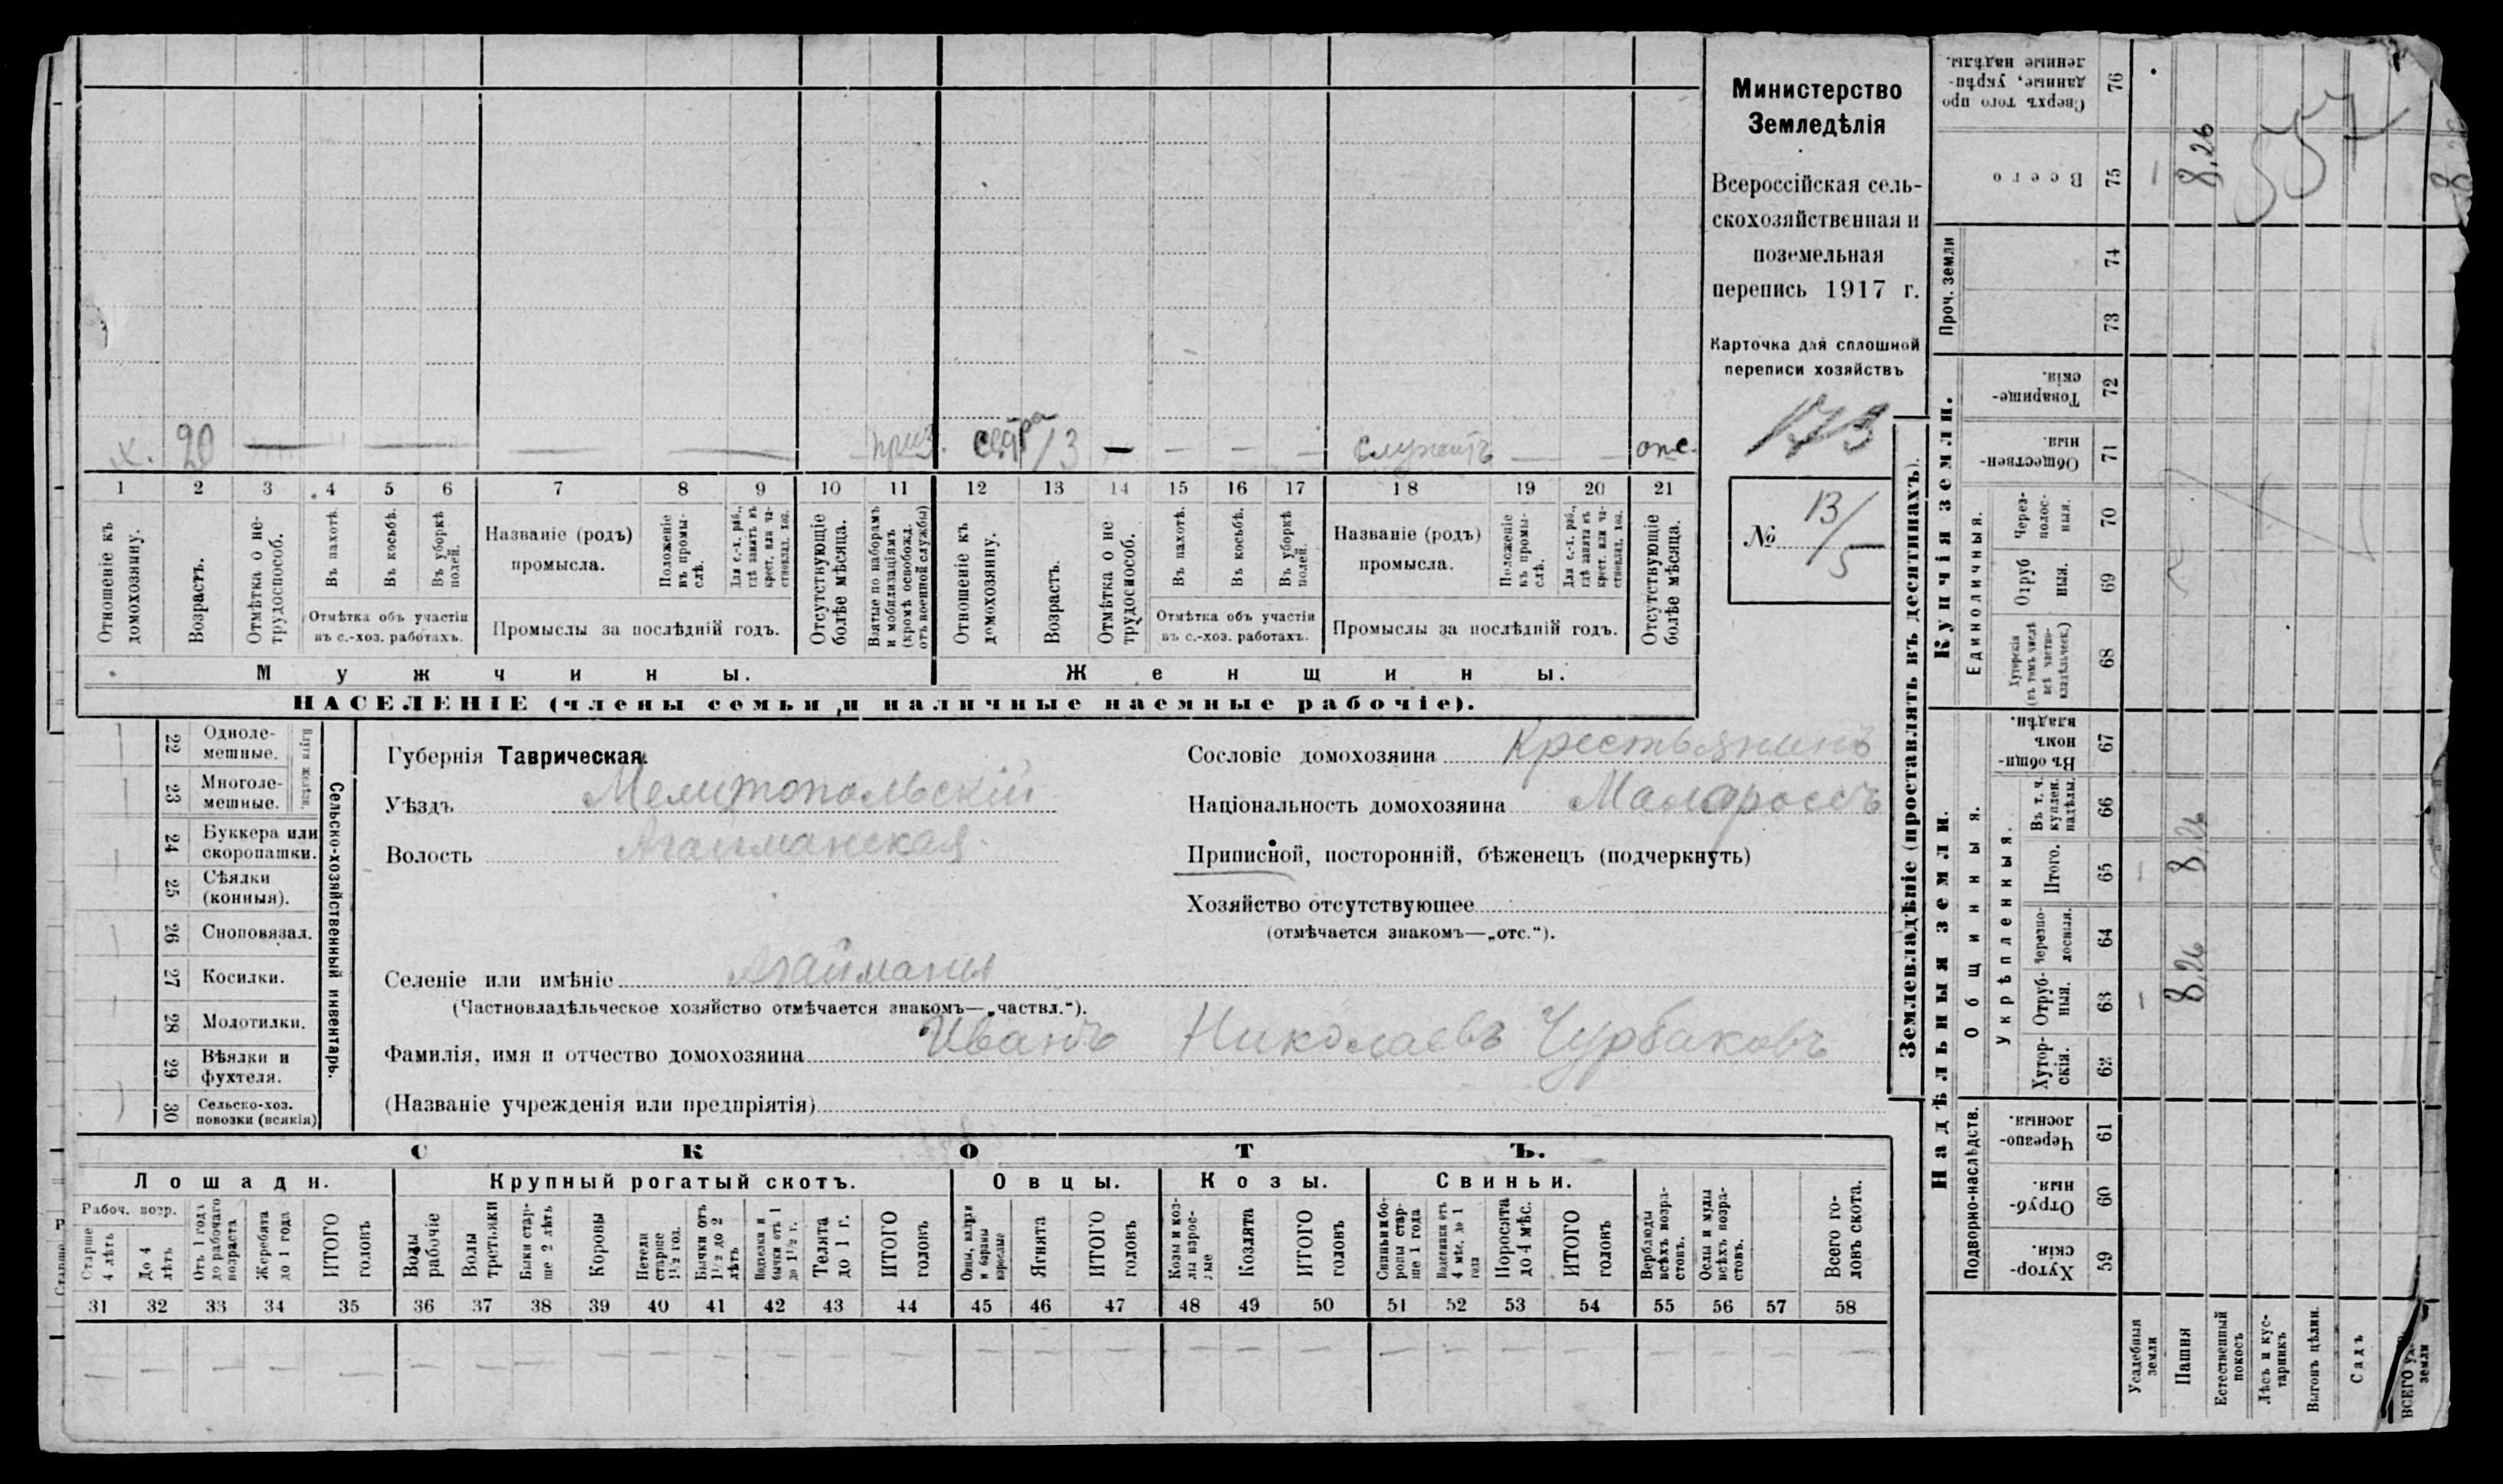 Министерство
Земледѣлія
Всероссійская сель-
скохозяйственная и
поземельная
перепись 1917 г.
Карточка для сплошной
переписи хозяйствъ
173
№ 13/5
х. 20 — — — — приз. сестра 13 — — — — служитъ — — отс.
1 2 3 4 5 6 7 8 9 10 11 12 13 14 15 16 17 18 19 20 21
Отношеніе къ домохозяину.
Возрастъ.
Отмѣтка о не-трудоспособ.
Въ пахотѣ.
Въ косьбѣ.
Въ уборкѣ полей.
Отмѣтка объ участіи
въ с.-хоз. работахъ.
Названіе (родъ)
промысла.
Положеніе въ промы-слѣ.
Для с.-х. раб., гдѣ занятъ въ крест. или ча-стновлад. хоз.
Промыслы за послѣдній годъ.
Отсутствующіе болѣе мѣсяца.
Взятые по наборамъ и мобилизаціямъ (кромѣ освобожд. отъ военной службы)
Отношеніе къ домохозяину.
Возрастъ.
Отмѣтка о не трудоспособ.
Въ пахотѣ.
Въ косьбѣ.
Въ уборкѣ полей.
Отмѣтка объ участіи
въ с.-хоз. работахъ.
Названіе (родъ)
промысла.
Положеніе въ промы-слѣ.
Для с.-х. раб., гдѣ занята въ крест. или ча-стновлад. хоз.
Промыслы за послѣдній годъ.
Отсутствующіе болѣе мѣсяца.
Мужчины.
Женщины.
НАСЕЛЕНІЕ (члены семьи и наличные наемные рабочіе).
22 Одноле-мешные.
23 Многоле-мешные.
24 Буккера или скоропашки.
25 Сѣялки (конныя).
26 Сноповязал.
27 Косилки.
28 Молотилки.
29 Вѣялки и фухтеля.
30 Сельско-хоз. повозки (всякія)
Сельско-хозяйственный инвентарь.
Губернія Таврическая.
Уѣздъ Мелитопольскій
Волость Агайманская
Селеніе или имѣніе Агайманы
(Частновладѣльческое хозяйство отмѣчается знакомъ—„частвл.“).
Сословіе домохозяина Крестьянинъ
Національность домохозяина Малороссъ
Приписной, посторонній, бѣженецъ (подчеркнуть)
Хозяйство отсутствующее
(отмѣчается знакомъ—„отс.“).
Фамилія, имя и отчество домохозяина Иванъ Николаевъ Чурбаковъ
(Названіе учрежденія или предпріятія)
СКОТЪ.
Лошади. Крупный рогатый скотъ. Овцы. Козы. Свиньи.
Рабоч. возр.
Старше 4 лѣтъ
До 4 лѣтъ
Отъ 1 года до рабочаго возраста
Жеребята до 1 года
ИТОГО головъ
Волы рабочіе
Волы третьяки
Быки стар-ше 2 лѣтъ
Коровы
Нетели старше 1½ год.
Бычки отъ 1½ до 2 лѣтъ
Подтелки и бычки отъ 1 до 1½ г.
Телята до 1 г.
ИТОГО головъ
Овцы, валухи и бараны взрослые
Ягнята
ИТОГО головъ
Козы и коз-лы взрос-лые
Козлята
ИТОГО головъ
Свиньи и бо-ровы стар-ше 1 года
Подсвинки отъ 4 мѣс. до 1 года
Поросята до 4 мѣс.
ИТОГО головъ
Верблюды всѣхъ возра-стовъ.
Ослы и мулы всѣхъ возра-стовъ.
Всего го-ловъ скота.
31 32 33 34 35 36 37 38 39 40 41 42 43 44 45 46 47 48 49 50 51 52 53 54 55 56 57 58
Землевладѣніе (проставлять въ десятинахъ).
Надѣльныя земли.
Купчія земли.
Проч. земли
Подворно-наслѣдств.
Общинныя.
Укрѣпленныя.
Единоличныя.
Хутор-скія. 59
Отруб-ныя. 60
Черезпо-лосныя. 61
Хутор-скія. 62
Отруб-ныя. 63
Черезпо-лосныя. 64
Итого. 65
Въ т. ч. куплен. надѣлы. 66
Въ общин-номъ владѣн. 67
Хуторскія (въ томъ числѣ всѣ частно-владѣльческ.) 68
Отруб ныя. 69
Через-полос-ныя. 70
Обществен-ныя. 71
Товарище-скія. 72
73
74
Всего 75
Сверхъ того про данные, укрѣп-ленные надѣлы. 76
Усадебныя земли
Пашня 8,26 8,26 8,26
Естественный покосъ
Лѣсъ и кус-тарникъ
Выгонъ цѣлин.
Садъ
357